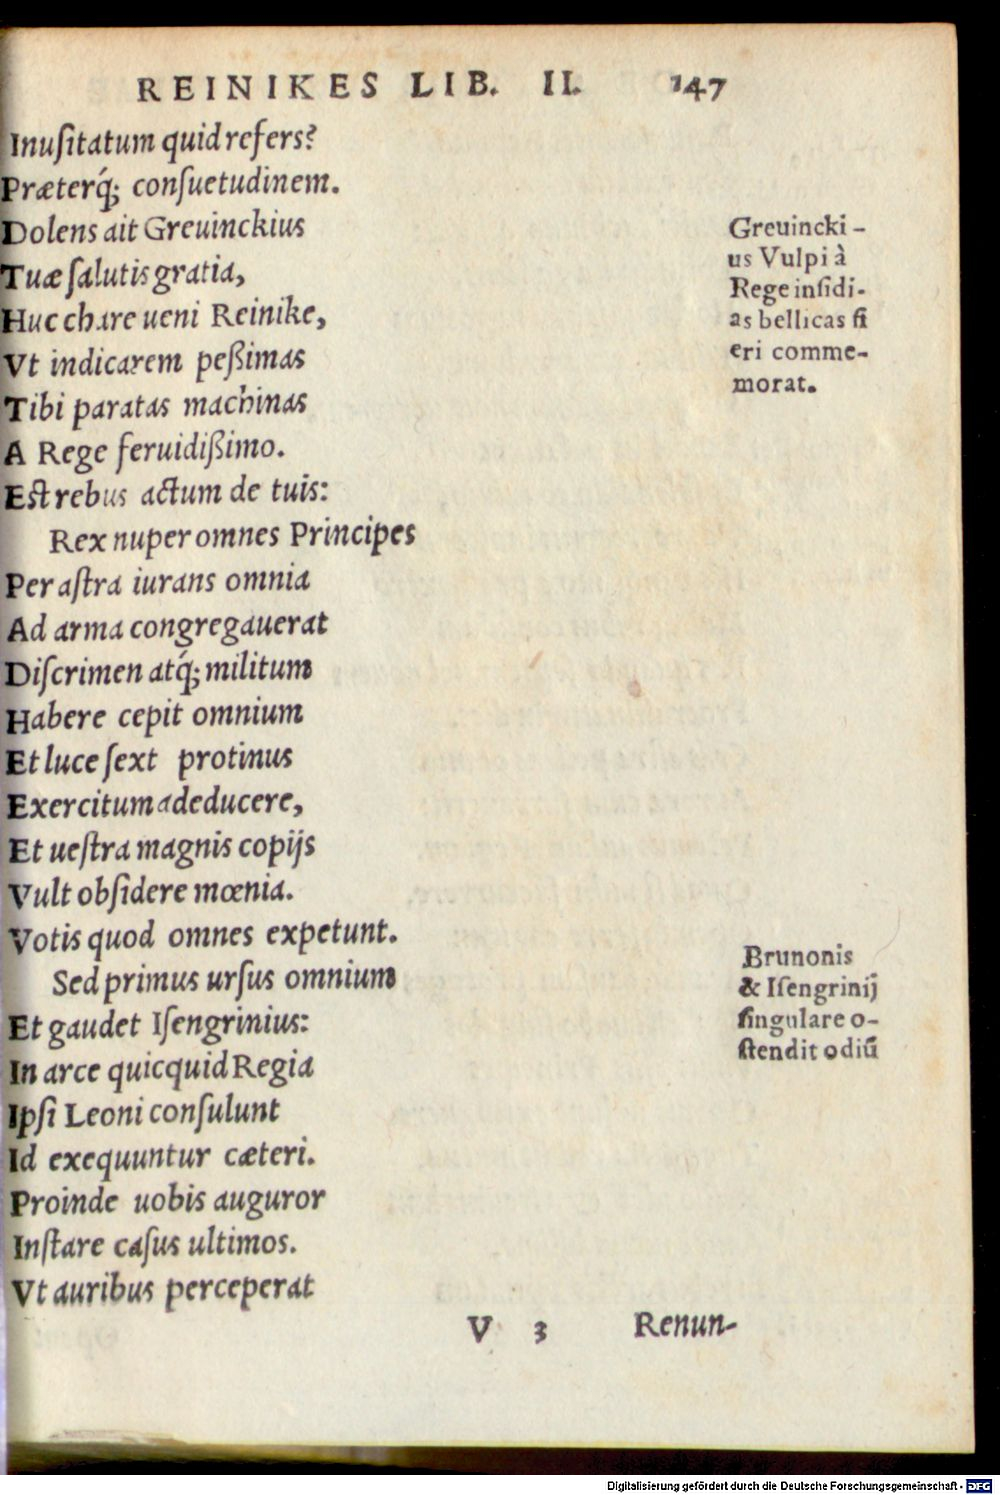 REINIKES LIB. II. 147
Inuſitatum quid refers?
Præterq́; conſuetudinem.
Dolens ait Greuinckius
Tuæ ſalutis gratia,
Huc chare ueni Reinike,
Vt indicarem peßimas
Tibi paratas machinas
A Rege feruidißimo.
Eſt rebus actum de tuis:
Rex nuper omnes Principes
Per aſtra iurans omnia
Ad arma congregauerat
Diſcrimen atq́; militum
Habere cepit omnium
Et luce ſext protinus
Exercitum adeducere,
Et ueſtra magnis copijs
Vult obſidere mœnia.
Votis quod omnes expetunt.
Sed primus urſus omnium
Et gaudet Iſengrinius:
In arce quicquid Regia
Ipſi Leoni conſulunt
Id exequuntur cæteri.
Proinde uobis auguror
Inſtare caſus ultimos.
Vt auribus perceperat
Greuincki-
us Vulpi à
Rege inſidi-
as bellicas fi
eri comme-
morat.
Brunonis
& Iſengrinij
ſingulare o-
ſtendit odiũ
V 3 Renun-
Digitalisierung gefördert durch die Deutsche Forschungsgemeinschaft - DFG